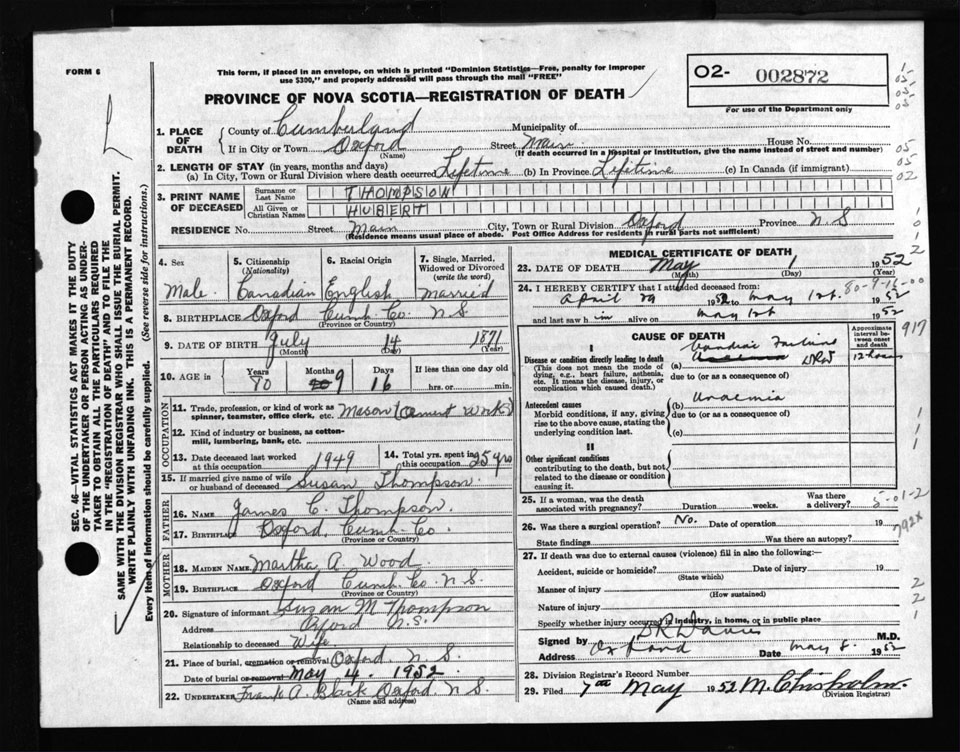 FORM 6
This form, if placed in an envelope, on which is printed "Dominion Statistics—Free, penalty for improper
use $300," and properly addressed will pass through the mail "FREE"
PROVINCE OF NOVA SCOTIA—REGISTRATION OF DEATH
02- 002872
For use of the Department only
1. PLACE OF DEATH
County of Cumberland Municipality of
If in City or Town Oxford Street Main House No.
(Name) (If death occurred in a Hospital or Institution, give the name instead of street and number)
2. LENGTH OF STAY (in years, months and days)
(a) In City, Town or Rural Division where death occurred Lifetime (b) In Province Lifetime (c) In Canada (if immigrant)
3. PRINT NAME OF DECEASED
Surname or Last Name THOMPSON
All Given or Christian Names HUBERT
RESIDENCE No. Street Main City, Town or Rural Division Oxford Province N.S
(Residence means usual place of abode. Post Office Address for residents in rural parts not sufficient)
4. Sex Male
5. Citizenship (Nationality) Canadian
6. Racial Origin English
7. Single, Married, Widowed or Divorced (write the word) Married
8. BIRTHPLACE Oxford Cumb. Co. N.S
(Province or Country)
9. DATE OF BIRTH July 14 1871
(Month) (Day) (Year)
10. AGE in Years 80 Months 9 Days 16 If less than one day old hrs. or min.
OCCUPATION
11. Trade, profession, or kind of work as spinner, teamster, office clerk, etc. Mason (Cement Works)
12. Kind of industry or business, as cotton-mill, lumbering, bank, etc.
13. Date deceased last worked at this occupation 1949
14. Total yrs. spent in this occupation 25 yrs
15. If married give name of wife or husband of deceased Susan Thompson.
FATHER
16. NAME James C. Thompson.
17. BIRTHPLACE Oxford, Cumb. Co
(Province or Country)
MOTHER
18. MAIDEN NAME Martha A Wood
19. BIRTHPLACE Oxford Cumb. Co. N.S.
(Province or Country)
20. Signature of informant Suzan M Thompson
Address Oxford N.S.
Relationship to deceased Wife
21. Place of burial, cremation or removal Oxford. N.S
Date of burial or removal May 4. 1952.
22. UNDERTAKER Frank A. Black Oxford. N.S
(Name and address)
MEDICAL CERTIFICATE OF DEATH
23. DATE OF DEATH May 1 1952
(Month) (Day) (Year)
24. I HEREBY CERTIFY that I attended deceased from:
April 29 1952 to May 1st. 1952
80-9-16-00
and last saw h im alive on May 1st 1952
CAUSE OF DEATH
Approximate interval between onset and death
917
I
Disease or condition directly leading to death
(This does not mean the mode of dying, e.g., heart failure, asthenia, etc. It means the disease, injury, or complication which caused death.)
(a) Cardiac Failure
12 hours
due to (or as a consequence of)
Antecedent causes
Morbid conditions, if any, giving rise to the above cause, stating the underlying condition last.
(b) Uraemia
due to (or as a consequence of)
(c)
II
Other significant conditions
contributing to the death, but not related to the disease or condition causing it.
25. If a woman, was the death associated with pregnancy? Duration weeks. Was there a delivery?
5-01-2
26. Was there a surgical operation? No. Date of operation 19
State findings Was there an autopsy?
792x
27. If death was due to external causes (violence) fill in also the following:—
Accident, suicide or homicide? Date of injury 19
(State which)
Manner of injury
(How sustained)
Nature of injury
Specify whether injury occurred in industry, in home, or in public place
Signed by D R Davies M.D.
Address Oxford Date May 8. 1952
28. Division Registrar's Record Number
29. Filed 7th May 1952 M. Chisholm.
(Division Registrar)
SEC. 46—VITAL STATISTICS ACT MAKES IT THE DUTY
OF THE UNDERTAKER OR PERSON ACTING AS UNDER-
TAKER TO OBTAIN ALL THE PARTICULARS REQUIRED
IN THE "REGISTRATION OF DEATH" AND TO FILE THE
SAME WITH THE DIVISION REGISTRAR WHO SHALL ISSUE THE BURIAL PERMIT.
WRITE PLAINLY WITH UNFADING INK. THIS IS A PERMANENT RECORD.
Every item of information should be carefully supplied. (See reverse side for instructions.)